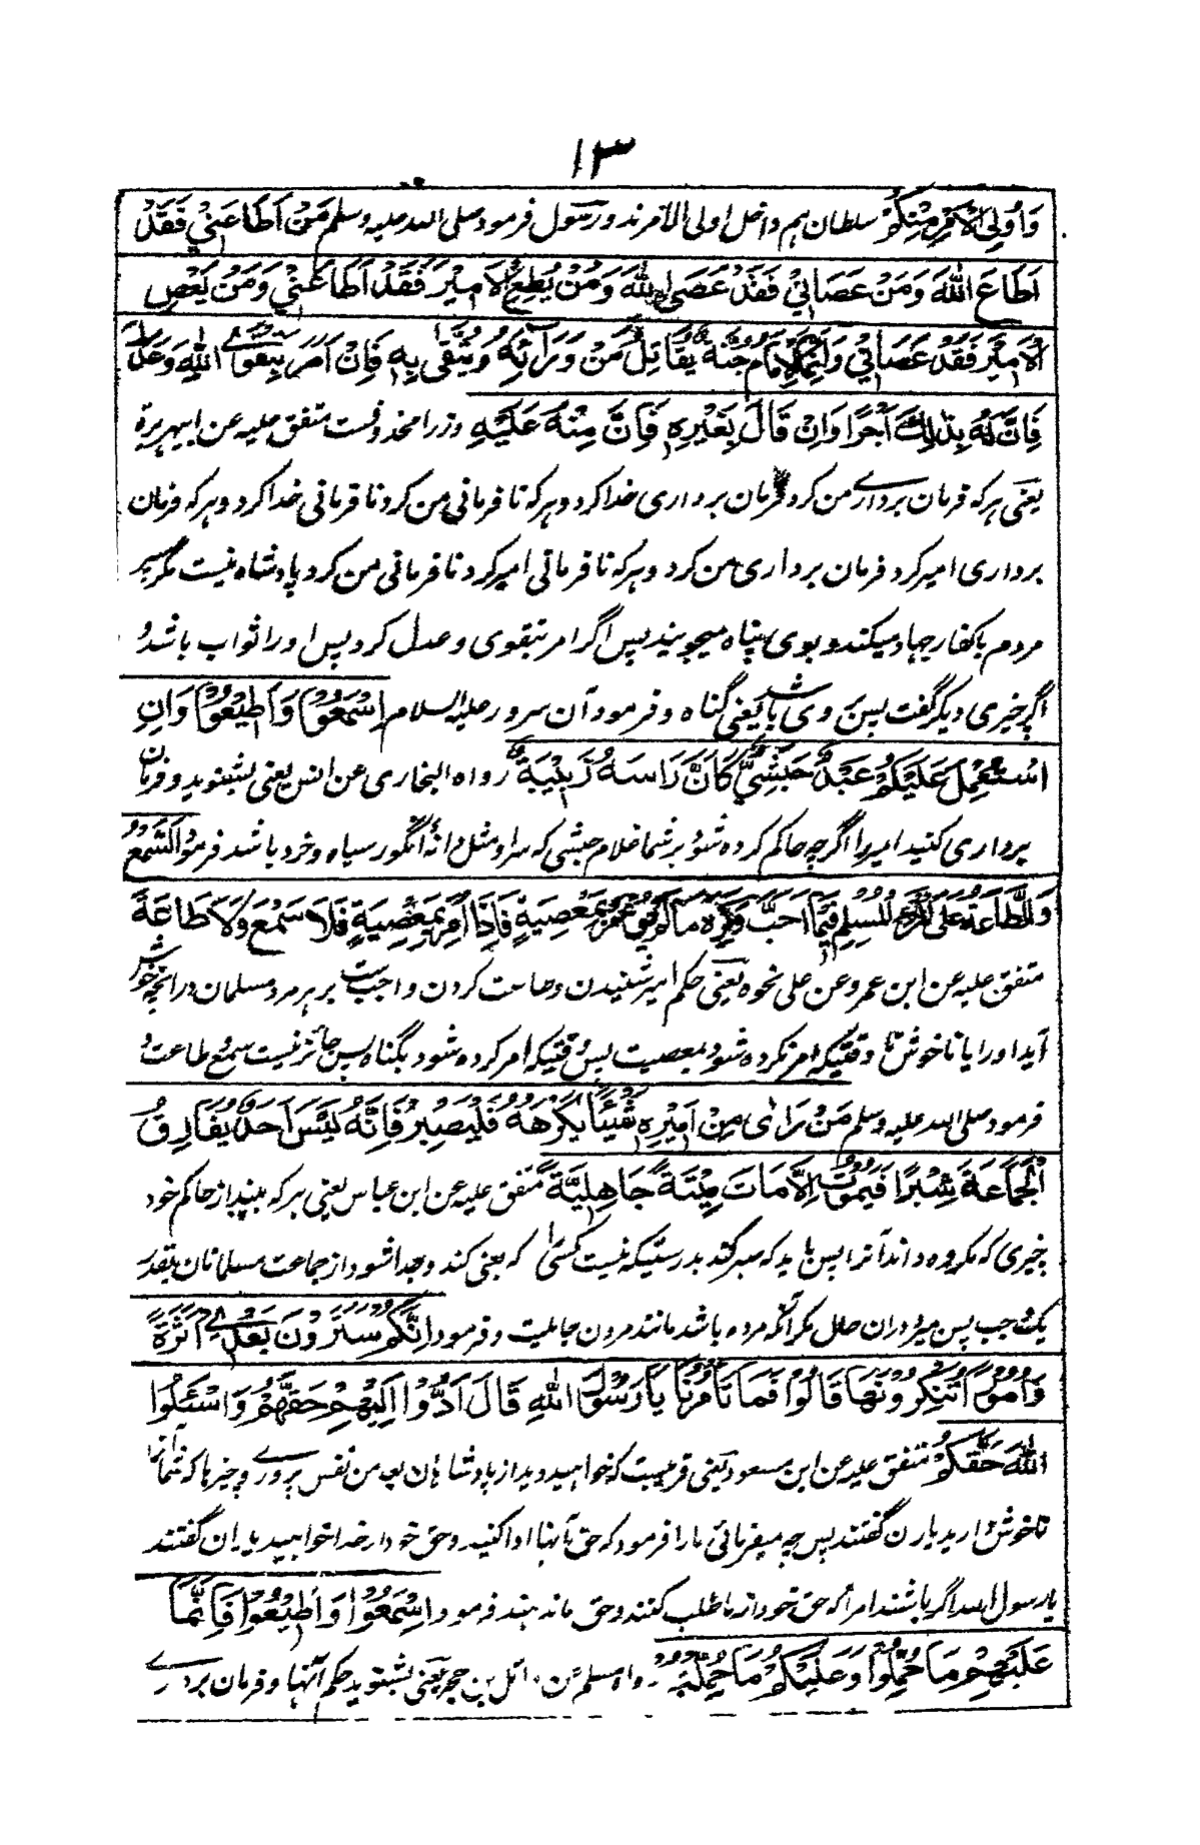 ۱۳
وَاُولِی الْاَمْرِ مِنْكُمْ سلطان ہم داخل اولی الامرند و رسول فرمود صلی اللہ علیہ وسلم مَنْ اَطَاعَنِيْ فَقَدْ
اَطَاعَ اللهَ وَمَنْ عَصَانِيْ فَقَدْ عَصَی اللهَ وَمَنْ يُطِعِ الْاَمِيْرَ فَقَدْ اَطَاعَنِيْ وَمَنْ يَعْصِ
الْاَمِيْرَ فَقَدْ عَصَانِيْ وَاِنَّمَا الْاِمَامُ جُنَّةٌ يُقَاتَلُ مِنْ وَرَائِهِ وَيُتَّقٰى بِهِ فَاِنْ اَمَرَ بِتَقْوَى اللهِ وَعَدَلَ
فَاِنَّ لَهُ بِذٰلِكَ اَجْرًا وَاِنْ قَالَ بِغَيْرِهِ فَاِنَّ مِنْهُ عَلَيْهِ وزرا محذوفست متفق علیہ عن ابیہریرة
یعنی ہر کہ فرمان برداری من کرد فرمان برداری خدا کرد و ہر کہ نافرمانی من کرد نافرمانی خدا کرد و ہر کہ فرمان
برداری امیر کرد فرمان برداری من کرد و ہر کہ نافرمانی امیر کرد نافرمانی من کرد پادشاہ نیست مگر سپر
مردم با کفار جہاد میکند و بوی پناہ میجویند پس اگر امر بتقوی و عدل کرد پس او را ثواب باشد و
اگر چیزی دیگر گفت پس بر وی باشد یعنی گناہ و فرمود آن سرور علیہ السلام اِسْمَعُوْا وَاَطِيْعُوْا وَاِنِ
اسْتُعْمِلَ عَلَيْكُمْ عَبْدٌ حَبَشِيٌّ كَاَنَّ رَاسَهُ زَبِيْبَةٌ رواہ البخاری عن انس یعنی بشنوید و فرمان
برداری کنید امیر را اگرچہ حاکم کردہ شود بر شما غلام حبشی کہ سر او مثل دانۂ انگور سیاہ و خرد باشد فرمود اَلسَّمْعُ
وَالطَّاعَةُ عَلَى الْمَرْءِ الْمُسْلِمِ فِيْمَا اَحَبَّ وَكَرِهَ مَا لَمْ يُؤْمَرْ بِمَعْصِيَةٍ فَاِذَا اُمِرَ بِمَعْصِيَةٍ فَلَا سَمْعَ وَلَا طَاعَةَ
متفق علیہ عن ابن عمر و عن علی نحوہ یعنی حکم امیر شنیدن و طاعت کردن واجب ست بر ہر مرد مسلمان در انچہ خوش
آید او را یا ناخوش تا وقتیکہ امر نکردہ شود بمعصیت پس وقتیکہ امر کردہ شود بگناہ پس جائز نیست سمع و طاعت و
فرمود صلی اللہ علیہ وسلم مَنْ رَاٰى مِنْ اَمِيْرِهِ شَيْئًا يَكْرَهُهُ فَلْيَصْبِرْ فَاِنَّهُ لَيْسَ اَحَدٌ يُفَارِقُ
الْجَمَاعَةَ شِبْرًا فَيَمُوْتُ اِلَّا مَاتَ مِيْتَةً جَاهِلِيَّةً متفق علیہ عن ابن عباس یعنی ہر کہ بیند از حاکم خود
چیزی کہ مکروہ داند آنرا پس باید کہ صبر کند بدرستیکہ نیست کسی کہ بغی کند و جدا شود از جماعت مسلمانان بقدر
یک وجب پس میرد در ان حال مگر آنکہ مردہ باشد مانند مردن جاہلیت و فرمود اِنَّكُمْ سَتَرَوْنَ بَعْدِيْ اَثَرَةً
وَاُمُوْرًا تُنْكِرُوْنَهَا قَالُوْا فَمَا تَاْمُرُنَا يَا رَسُوْلَ اللهِ قَالَ اَدُّوْا اِلَيْهِمْ حَقَّهُمْ وَاسْئَلُوا
اللهَ حَقَّكُمْ متفق علیہ عن ابن مسعود یعنی قریب ست کہ خواہید دید از پادشاہان بعد من نفس پروری و چیزہا کہ شما آنرا
ناخوش دارید یاران گفتند پس چہ میفرمائی ما را فرمود کہ حق آنہا ادا کنید و حق خود از خدا خواہید یاران گفتند
یا رسول اللہ اگر باشند امرا کہ حق خود از ما طلب کنند و حق ما ندہند فرمود اِسْمَعُوْا وَاَطِيْعُوْا فَاِنَّمَا
عَلَيْهِمْ مَا حُمِّلُوْا وَعَلَيْكُمْ مَا حُمِّلْتُمْ رواہ مسلم عن وائل بن حجر یعنی بشنوید حکم آنہا و فرمان برداری